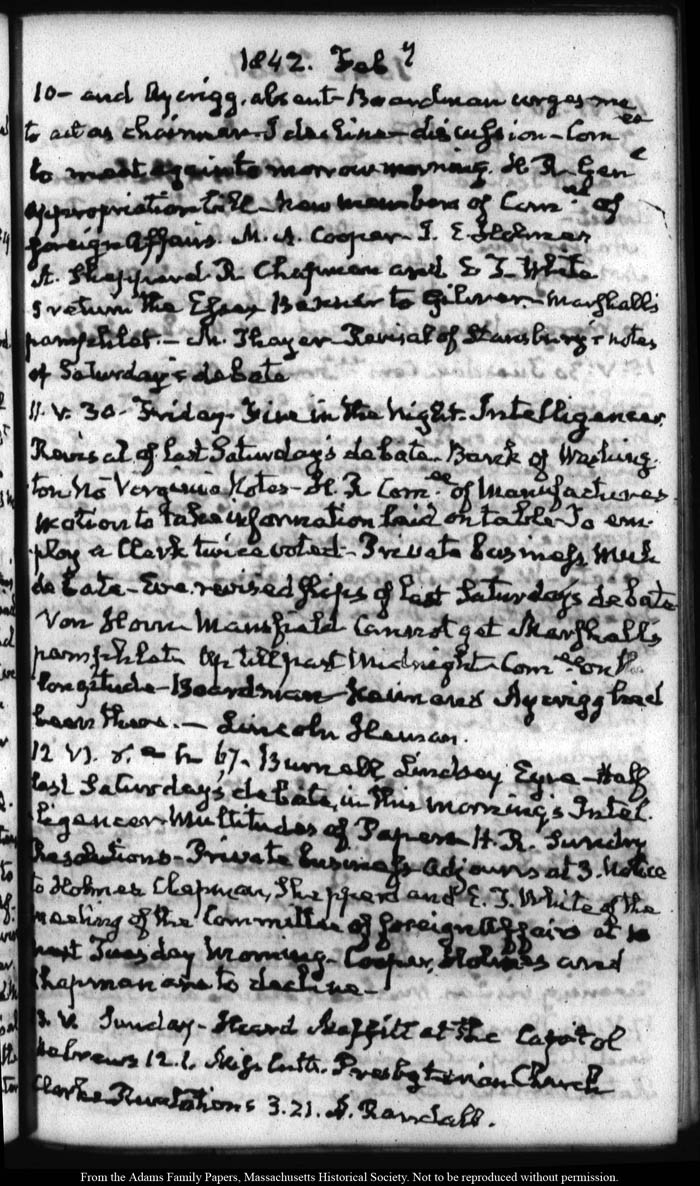 1842. Feb y
10 - and Aycrigg, absent - Boardman urges me
to act as chairman - I decline - discussion - Com ee
to meet again to morrow morning. H. R. Gen l
appropriation bill - New members of Com ee of
foreign Affairs. M. A. Cooper I. E. Holmes
A. Sheppard R. Chapman and E. J. White
I return the Essex Banner to Gilmer. Marshall's
pamphlet. - M. Thayer - Revisal of Stansbury's notes
of Saturday's debate
11. V. 30. Friday. Fire in the night. Intelligencer.
Revisal of last Saturday's debate. Bank of Washing-
ton no Virginia Notes - H. R. Com ee of Manufactures
motion to take information laid on table. To em-
ploy a Clerk twice voted - Private business much
debate - Eve. revised slips of last Saturday's debate
Von Mansfield cannot get Marshall's
pamphlet. Up till past Midnight. Com ee on th
longitude - Boardman and Aycrigg had
been there. - Lincoln
12 VI. Burnell Lindsay Eyre - Half
last Saturday's debate, in this morning's Intel-
ligencer. Multitudes of Papers. H. R. Sundry
Resolutions - Private business - adjourn at 3. Notice
to Holmes Chapman, Sheppard and E. J. White of the
meeting of the Committee of foreign Affairs at 10
next Tuesday Morning. Cooper, Holmes and
Chapman are to decline -
V. Sunday - Heard Maffitt at the Capitol
Hebrews 12.1. Presbyterian Church
Clarke Revelations 3.21. S. Randall.
From the Adams Family Papers, Massachusetts Historical Society. Not to be reproduced without permission.